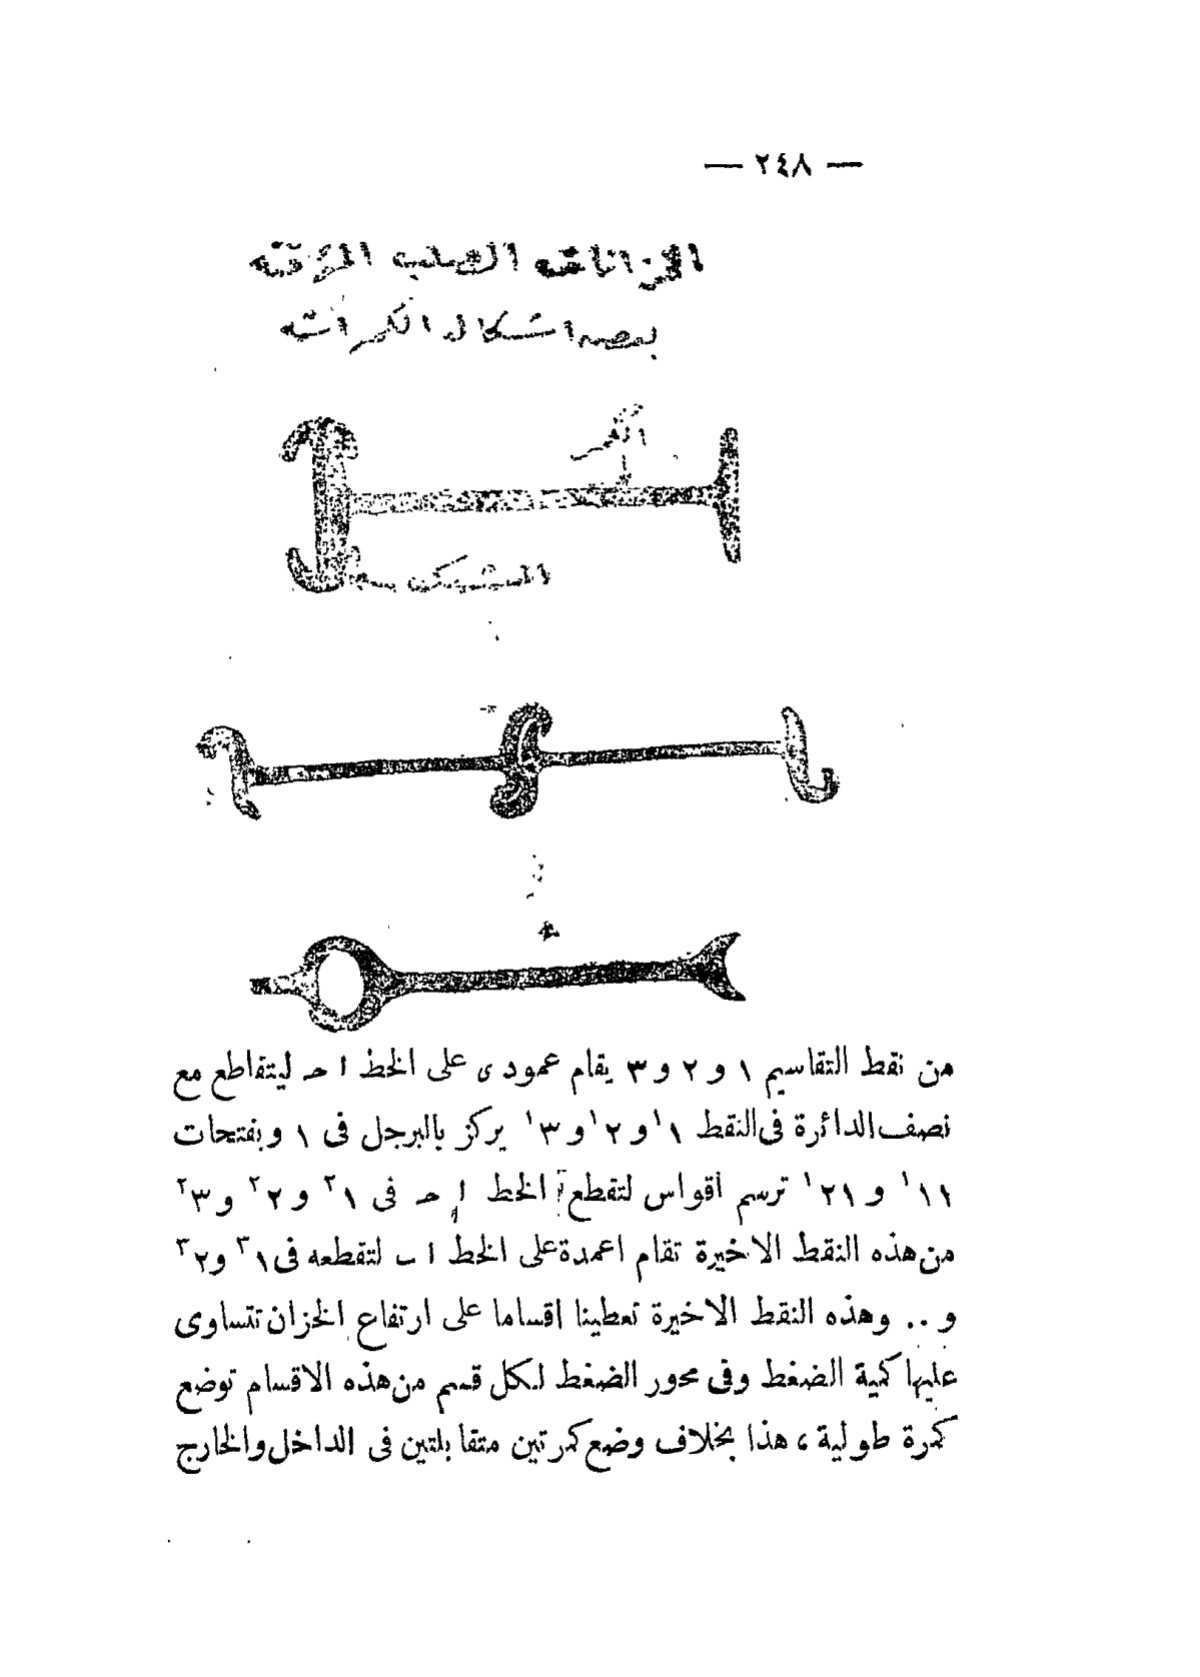 — ٢٤٨ —
الخزانات الصلب المرتفعة
بعض اشكال الكمرات
الكمر
المشبك
من نقط التقاسيم ١ و ٢ و ٣ يقام عمودى على الخط ا حـ ليتقاطع مع
نصف الدائرة فى النقط ١١ و ٢١ و ٣١ يركز بالبرجل فى ١ وبفتحات
١١١ و ٢١١ ترسم اقواس لتقطع الخط ا حـ فى ١٢ و ٢٢ و ٣٢
من هذه النقط الاخيرة تقام اعمدة على الخط ا ب لتقطعه فى ١٣ و ٢٣
و .. وهذه النقط الاخيرة تعطينا اقساما على ارتفاع الخزان تتساوى
عليها كمية الضغط وفى محور الضغط لكل قسم من هذه الاقسام توضع
كمرة طولية ، هذا بخلاف وضع كمرتين متقابلتين فى الداخل والخارج